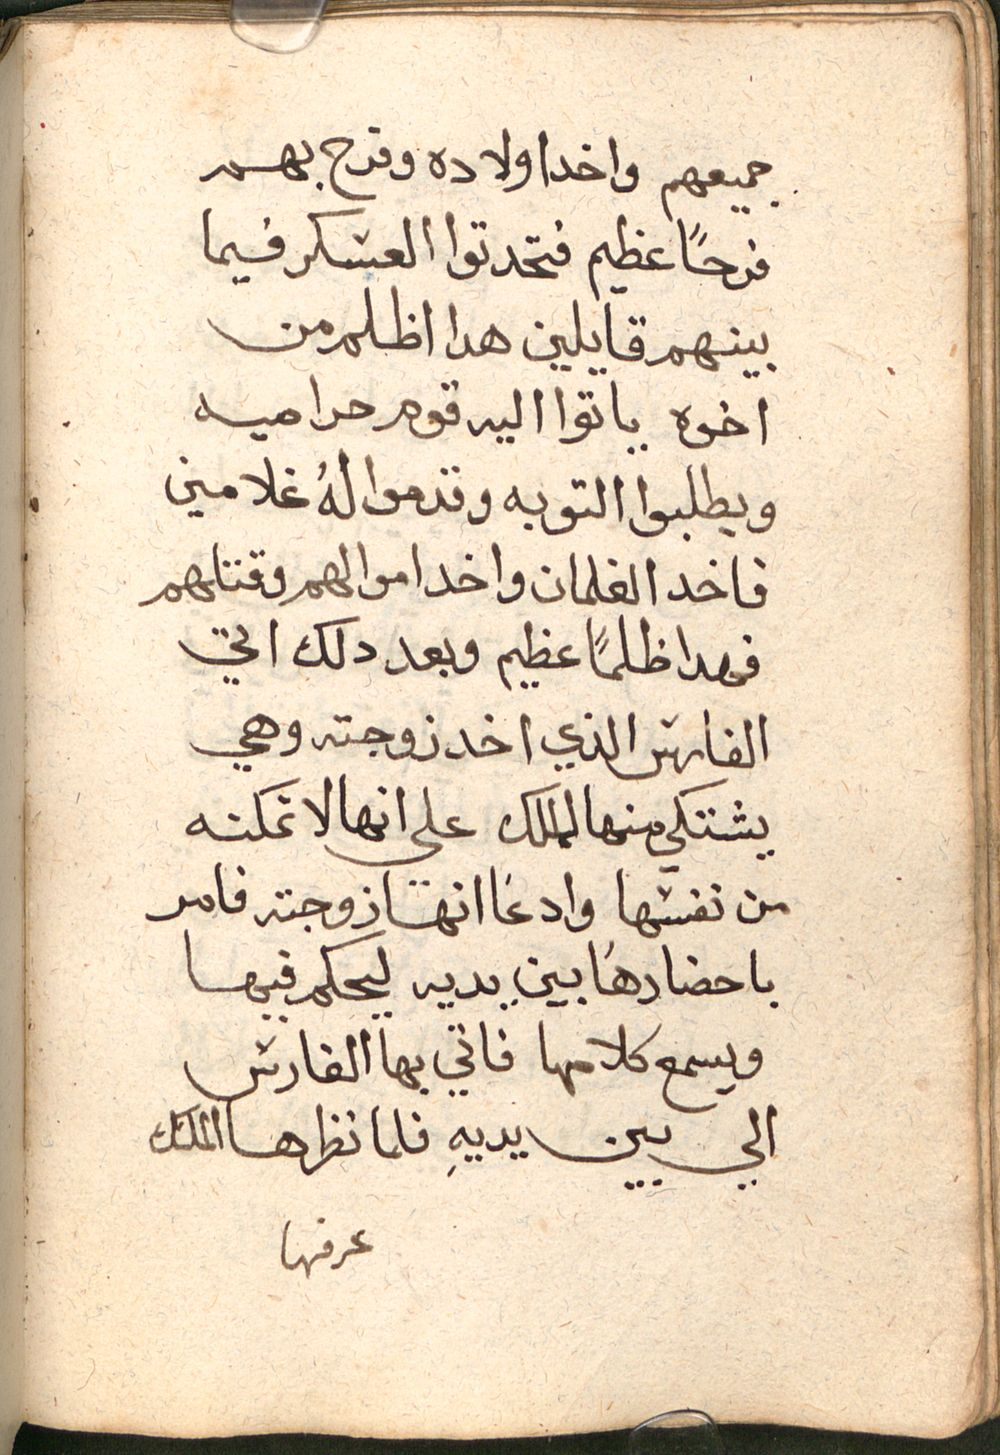 جميعهم واخد اولاده وفرح بهم
فرحًا عظيم فتحدتوا العسكر فيما
بينهم قايلين هدا اظلم من
اخوه ياتوا اليه قوم حراميه
ويطلبوا التوبه وقدموا لهُ غلامين
فاخد الغلمان واخد اموالهم وقتلهم
فهدا ظلمًا عظيم وبعد دلك اتي
الفارس الذي اخد زوجته وهي
يشتكي منها للملك علي انها لا تمكنه
من نفسها وادعا انها زوجته فامر
باحضارها بين يديه ليحكم فيها
ويسمع كلامها فاتي بها الفارس
الي بين يديهِ فلما نظرها الملك
عرفها